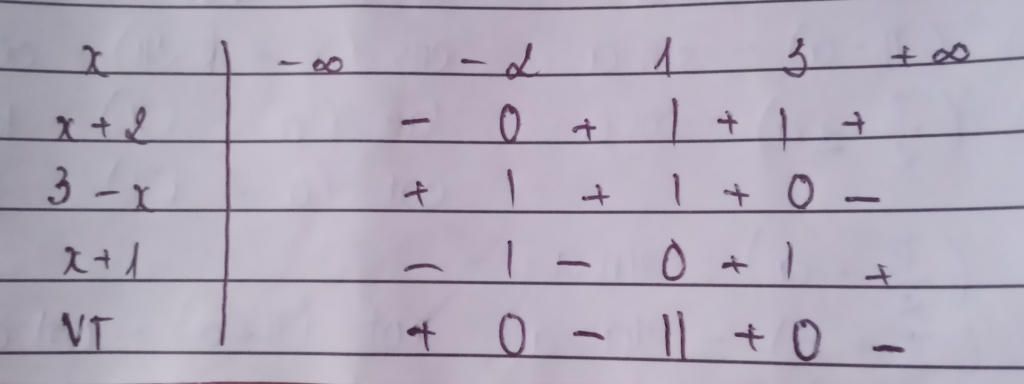 x | -∞ -2 1 3 +∞
x+2 | - 0 + | + | +
3-x | + | + | + 0 -
x+1 | - | - 0 + | +
VT | + 0 - || + 0 -